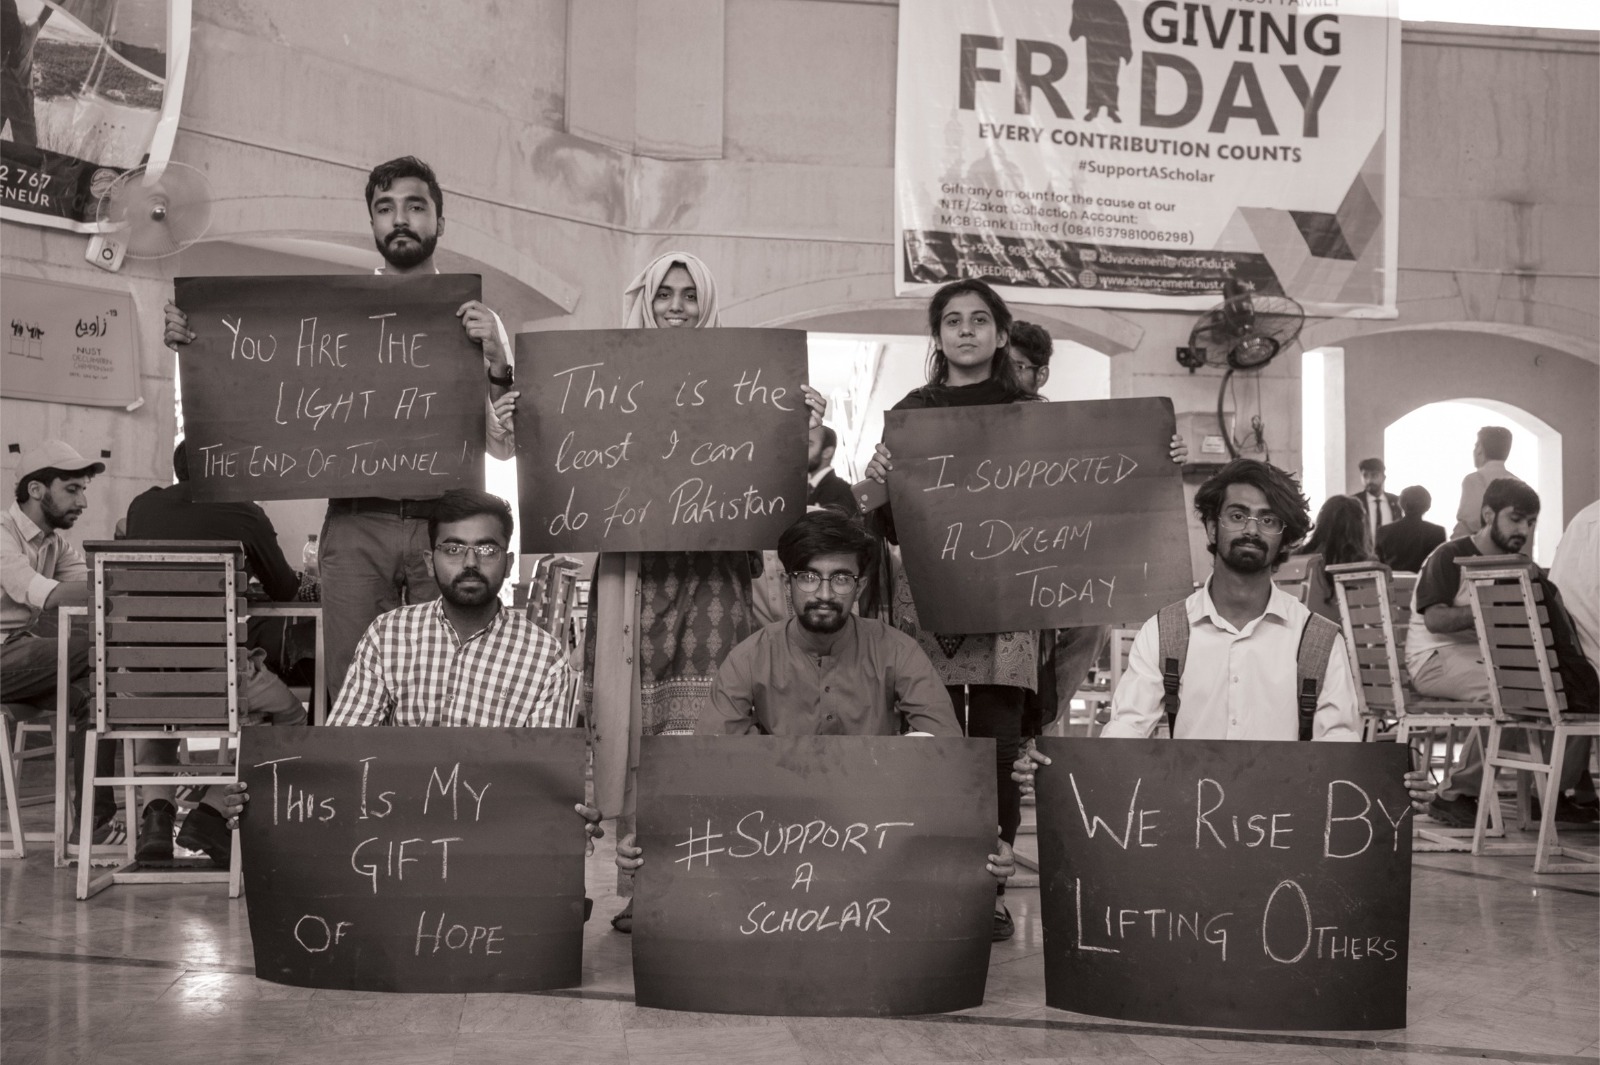 GIVING
FRIDAY
EVERY CONTRIBUTION COUNTS
#SupportAScholar
Gift any amount for the cause at our
NTF/Zakat Collection Account:
MCB Bank Limited (0841637981006298)
advancement@nust.edu.pk
www.advancement.nust.edu.pk
2 767
ENEUR
زاویہ
NUST
YOU ARE THE
LIGHT AT
THE END OF TUNNEL !
This is the
least I can
do for Pakistan
I SUPPORTED
A DREAM
TODAY !
THIS IS MY
GIFT
OF HOPE
#SUPPORT
A
SCHOLAR
WE RISE BY
LIFTING OTHERS